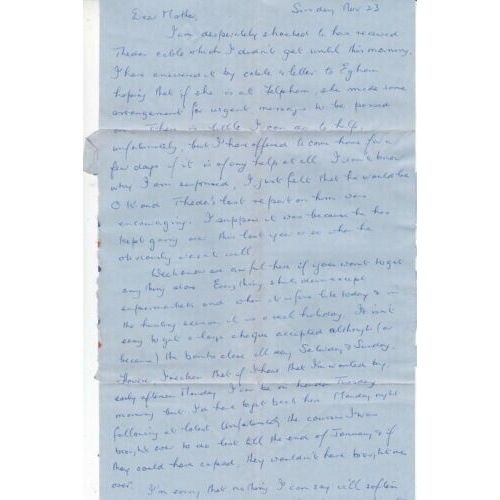 Dear Mother, Sunday Nov 23
I'm desperately shocked to have received
Theda's cable which I didn't get until this morning.
I have answered it by cable & letter to Egham
hoping that if she is at Felpham, she made some
arrangement for urgent messages to be passed
on. There is little I can do to help,
unfortunately, but I have offered to come home for a
few days if it is of any help at all. I don't know
why I am surprised, I just felt that he would be
O.K. and Theda's last report on him was
encouraging. I suppose it was because he has
kept going over this last year or so when he
obviously wasn't well.
Weekends are awful here if you want to get
anything done. Everything shuts down except
supermarkets and when it is fine like today & in
the hunting season it is a real holiday. It isn't
easy to get a large cheque accepted although (or
because) the banks close all day Saturday & Sunday.
However I reckon that if I hear that I'm wanted by
early afternoon Monday I can be in London Tuesday
morning but I'd have to get back here Monday night
following at latest. Unfortunately the course I was
brought over to do lasts till the end of January & if
they could have coped, they wouldn't have brought me
over. I'm sorry that nothing I can say will soften